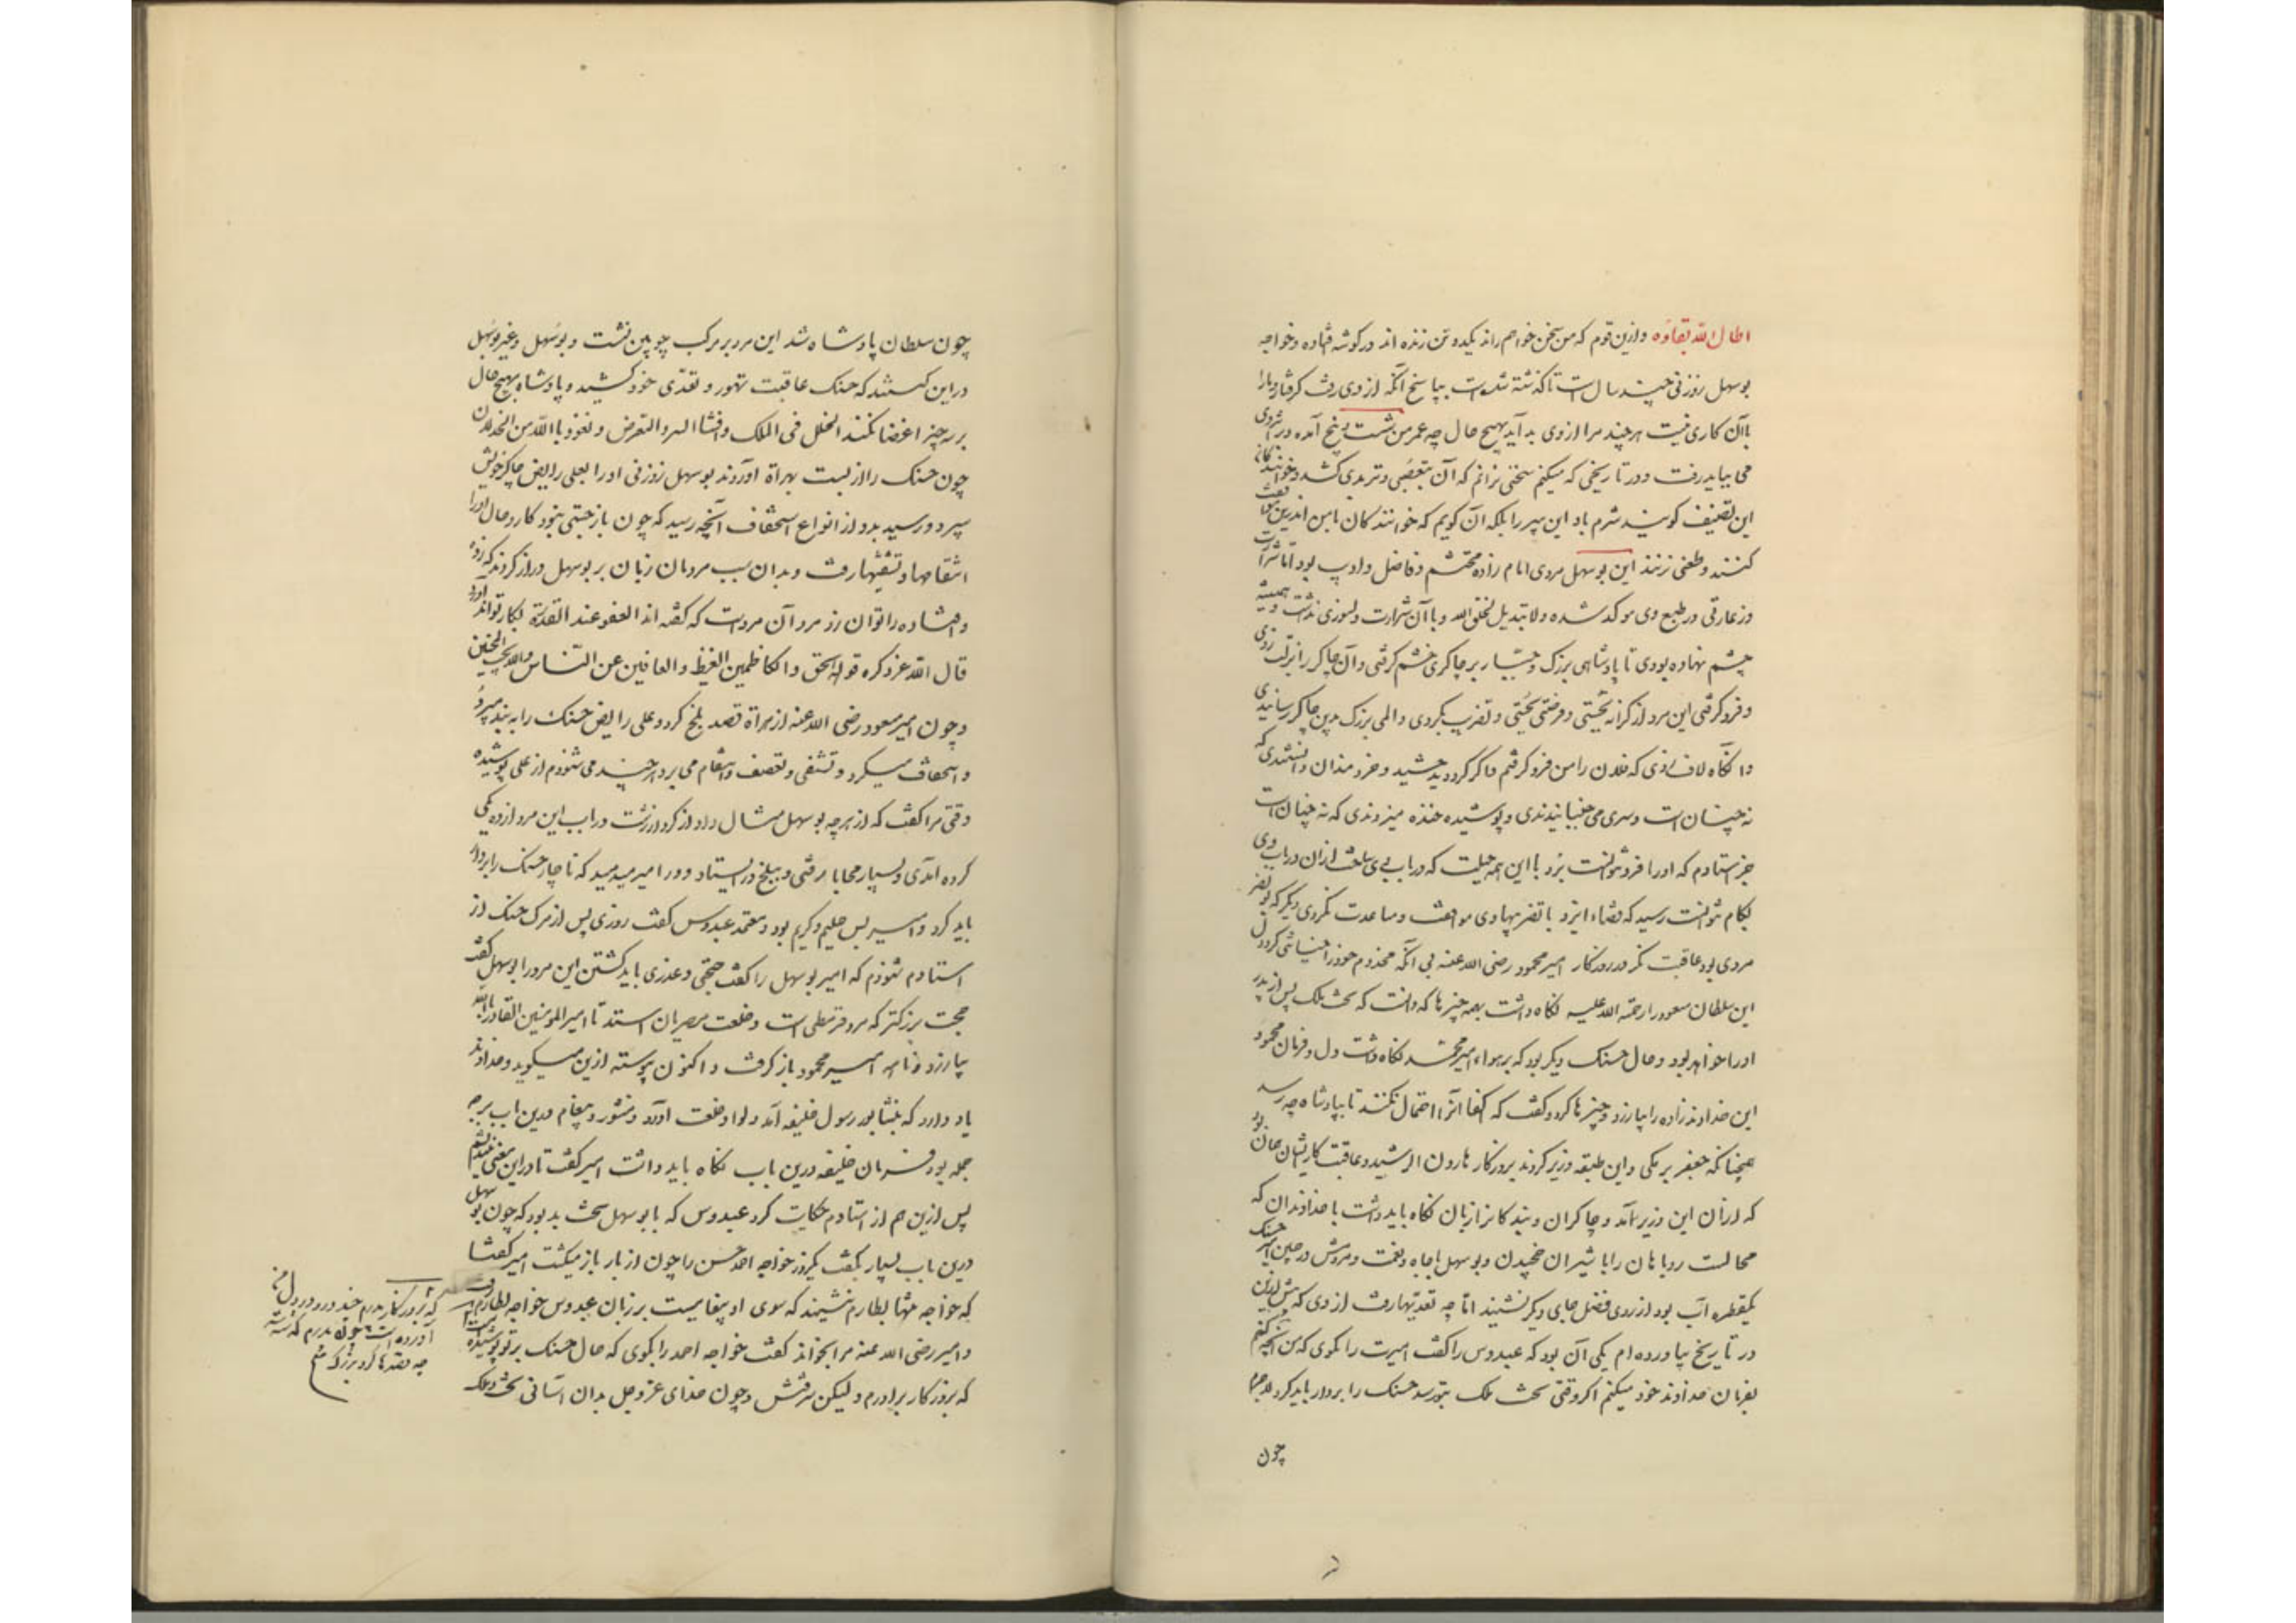 اطال اللّه بقاؤه و ازین قوم که من سخن خواهم راند یکدو تن زنده اند در کوشه فتاده و خواجه
بوسهل زوزنی چند سال است تا کذشته شده است بپاسخ آنکه از وی رفت کرفتار و ما را
با آن کاری نیست هر چند مرا از وی بد آید بهیچ حال چه عمر من بشست و پنج آمده و بر اثر وی
می بباید رفت و در تاریخی که میکنم سخنی نرانم که آن بتعصبی و تربدی کشد و خوانندکان
این تصنیف کویند شرم باد این پیر را بلکه آن کویم که خوانندکان با من اندرین موافقت
کنند و طعنی نزنند این بوسهل مردی امام زاده محتشم و فاضل و ادیب بود اما شرارت
و زعارتی در طبع وی موکد شده و لا تبدیل لخلق الله و با آن شرارت دلسوزی نداشت و همیشه
چشم نهاده بودی تا پادشاهی بزرک و جبّار بر چاکری خشم کرفتی و آن چاکر را بزدی
و فرو کرفتی این مرد از کرانه بجستی و فرصتی بجستی و تضریب کردی و المی بزرک بدین چاکر رسانیدی
و آنکاه لاف زدی که فلان را من فرو کرفتم و اکر کرد دید و چشید و خردمندان دانستندی که
نه چنان است و سری می جنبانیدندی و پوشیده خنده میزدندی که نه چنان است
جز استادم که او را فرو نتوانست برد با این همه حیلت که در باب وی ساخت از آن در باب وی
بکام نتوانست رسید که قضاء ایزد با تضریبهاء وی موافقت و مساعدت نکردی و دیکر که بونصر
مردی بود عاقبت نکر در روزکار امیر محمود رضی الله عنه بی آنکه مخدوم خود را خیانتی کرد دل
این سلطان مسعود را رحمة الله علیه نکاه داشت بهمه چیزها که دانست که تخت ملک پس از پدر
او را خواهد بود و حال حسنک دیکر بود که بر هواء امیر محمد نکاه داشت دل و فرمان محمود
این خداوند زاده را بیازرد و چیزها کرد و کفت که اکفا آنرا احتمال نکنند تا بپادشاه چه رسد
همچنانکه جعفر برمکی و این طبقه وزیری کردند بروزکار هارون الرشید و عاقبت کار ایشان همان بود
که از آن این وزیر آمد و چاکران و بندکانرا زبان نکاه باید داشت با خداوندان که
محالست روباهان را با شیران چخیدن و بوسهل با جاه و نعمت و مردمش در جنب امیر حسنک
یکقطره آب بود از رودی فضل جای دیکر نشیند اما چه تعدیها رفت از وی که پیش ازین
در تاریخ بیاورده ام یکی آن بود که عبدوس را کفت امیرت را بکوی که من آنچه کنم
بفرمان خداوند خود میکنم اکر وقتی تخت ملک بتو رسد حسنک را بر دار باید کرد لاجرم
چون
چون سلطان پادشاه شد این مرد بر مرکب چوبین نشست و بوسهل و غیر بوسهل
در این کیستند که حسنک عاقبت تهور و تعدّی خود کشید و پادشاه بهیچ حال
بر سه چیز اغضا نکنند الخلل فی الملک و افشاء السر و التعرض و نعوذ باللّه من الخذلان
چون حسنک را از بست بهراة آوردند بوسهل زوزنی او را بعلی رایض چاکر خویش
سپرد و رسید بدو از انواع استخفاف آنچه رسید که چون بازجستی نبود کار و حال او را
انتقامها و تشفیها رفت و بدان سبب مردمان زبان بر بوسهل دراز کردند که زده
و افتاده را توان زد مرد آن مرد است که کفته اند العفو عند القدرة بکار تواند آورد
قال اللّه عز ذکره قوله الحق و الکاظمین الغیظ و العافین عن النّاس و اللّه یحب المحسنین
و چون امیر مسعود رضی الله عنه از هراة قصد بلخ کرد و علی رایض حسنک را به بند میبرد
و استخفاف میکرد و تشفی و تعصب و انتقام می برد هر چند می شنودم از علی پوشیده
وقتی مرا کفت که از هر چه بوسهل مثال داد از کردار زشت در باب این مرد از ده یکی
کرده آمدی و بسیار محابا رفتی و ببلخ در ایستاد و در امیر میدمید که ناچار حسنک را بر دار
باید کرد و امیر بس حلیم و کریم بود و معتمد عبدوس کفت روزی پس از مرک حسنک از
استادم شنودم که امیر بوسهل را کفت حجتی و عذری باید کشتن این مرد را بوسهل کفت
حجت بزرکتر که مرد قرمطی است و خلعت مصریان استد تا امیر المومنین القادر باللّه
بیازرد و نامه امیر محمود باز کرفت و اکنون پیوسته ازین میکوید و خداوند
یاد دارد که بنشابور رسول خلیفه آمد و لوا و خلعت آورد و منشور و پیغام درین باب بر چه
جمله بود فرمان خلیفه درین باب نکاه باید داشت امیر کفت تا در این معنی بیندیشم
پس ازین هم از استادم حکایت کرد عبدوس که با بوسهل سخت بد بود که چون بوسهل
درین باب بسیار بکفت یکروز خواجه احمد حسن را چون از بار باز میکشت امیر کفتا
که خواجه تنها بطارم نشیند که سوی او پیغامیست بر زبان عبدوس خواجه بطارم رفت
و امیر رضی الله عنه مرا بخواند کفت خواجه احمد را بکوی که حال حسنک بر تو پوشیده نیست
که بروزکار برادرم و لیکن نرفتش و چون خدای عز و جل بدان آسانی تخت و ملک
که بروزکار پدرم چند درد در دل ما
آورده است و چون پدرم کذشته شد
چه قصدها کرد بزرک